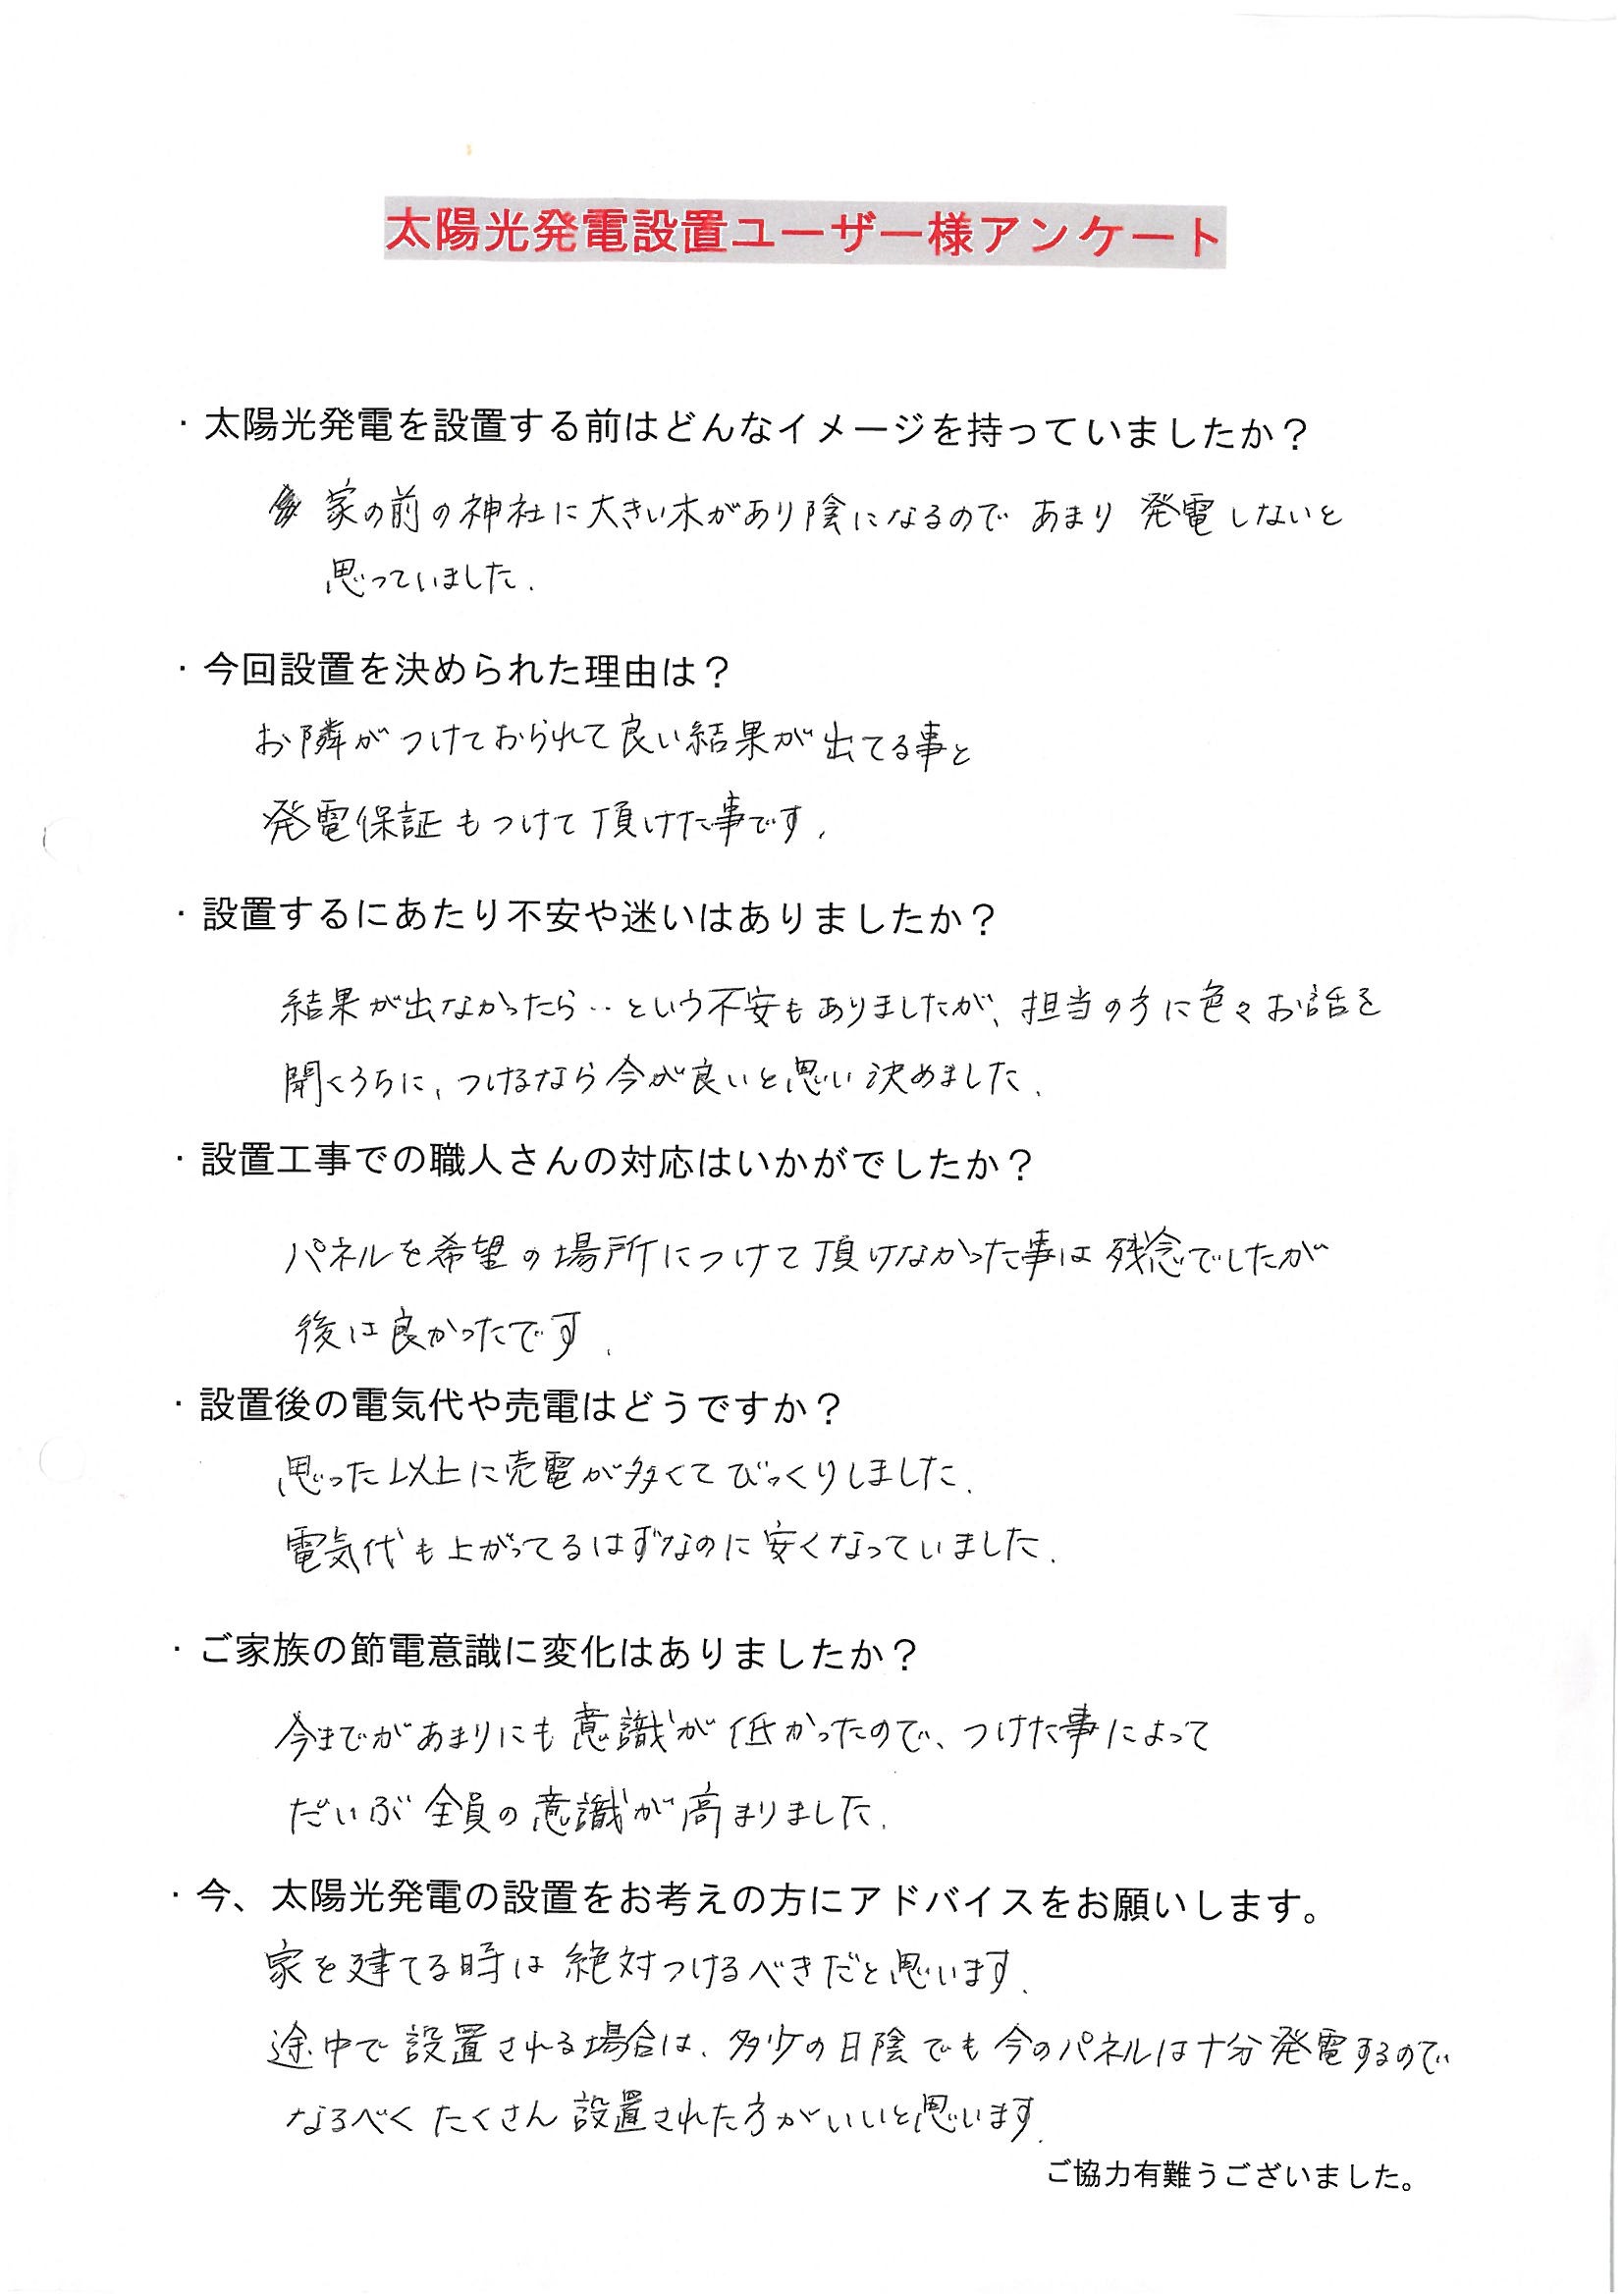 太陽光発電設置ユーザー様アンケート
・太陽光発電を設置する前はどんなイメージを持っていましたか？
家の前の神社に大きい木があり陰になるので あまり 発電しないと
思っていました.
・今回設置を決められた理由は？
お隣がつけておられて良い結果が出てる事と
発電保証もつけて頂けた事です.
・設置するにあたり不安や迷いはありましたか？
結果が出なかったら‥という不安もありましたが、担当の方に色々お話を
聞くうちに、つけるなら今が良いと思い決めました.
・設置工事での職人さんの対応はいかがでしたか？
パネルを希望の場所につけて頂けなかった事は残念でしたが
後は良かったです.
・設置後の電気代や売電はどうですか？
思った以上に売電が多くてびっくりしました.
電気代も上がってるはずなのに安くなっていました.
・ご家族の節電意識に変化はありましたか？
今までがあまりにも意識が低かったので、つけた事によって
だいぶ全員の意識が高まりました.
・今、太陽光発電の設置をお考えの方にアドバイスをお願いします。
家を建てる時は絶対つけるべきだと思います.
途中で設置される場合は、多少の日陰でも今のパネルは十分発電するので
なるべくたくさん設置された方がいいと思います.
ご協力有難うございました。